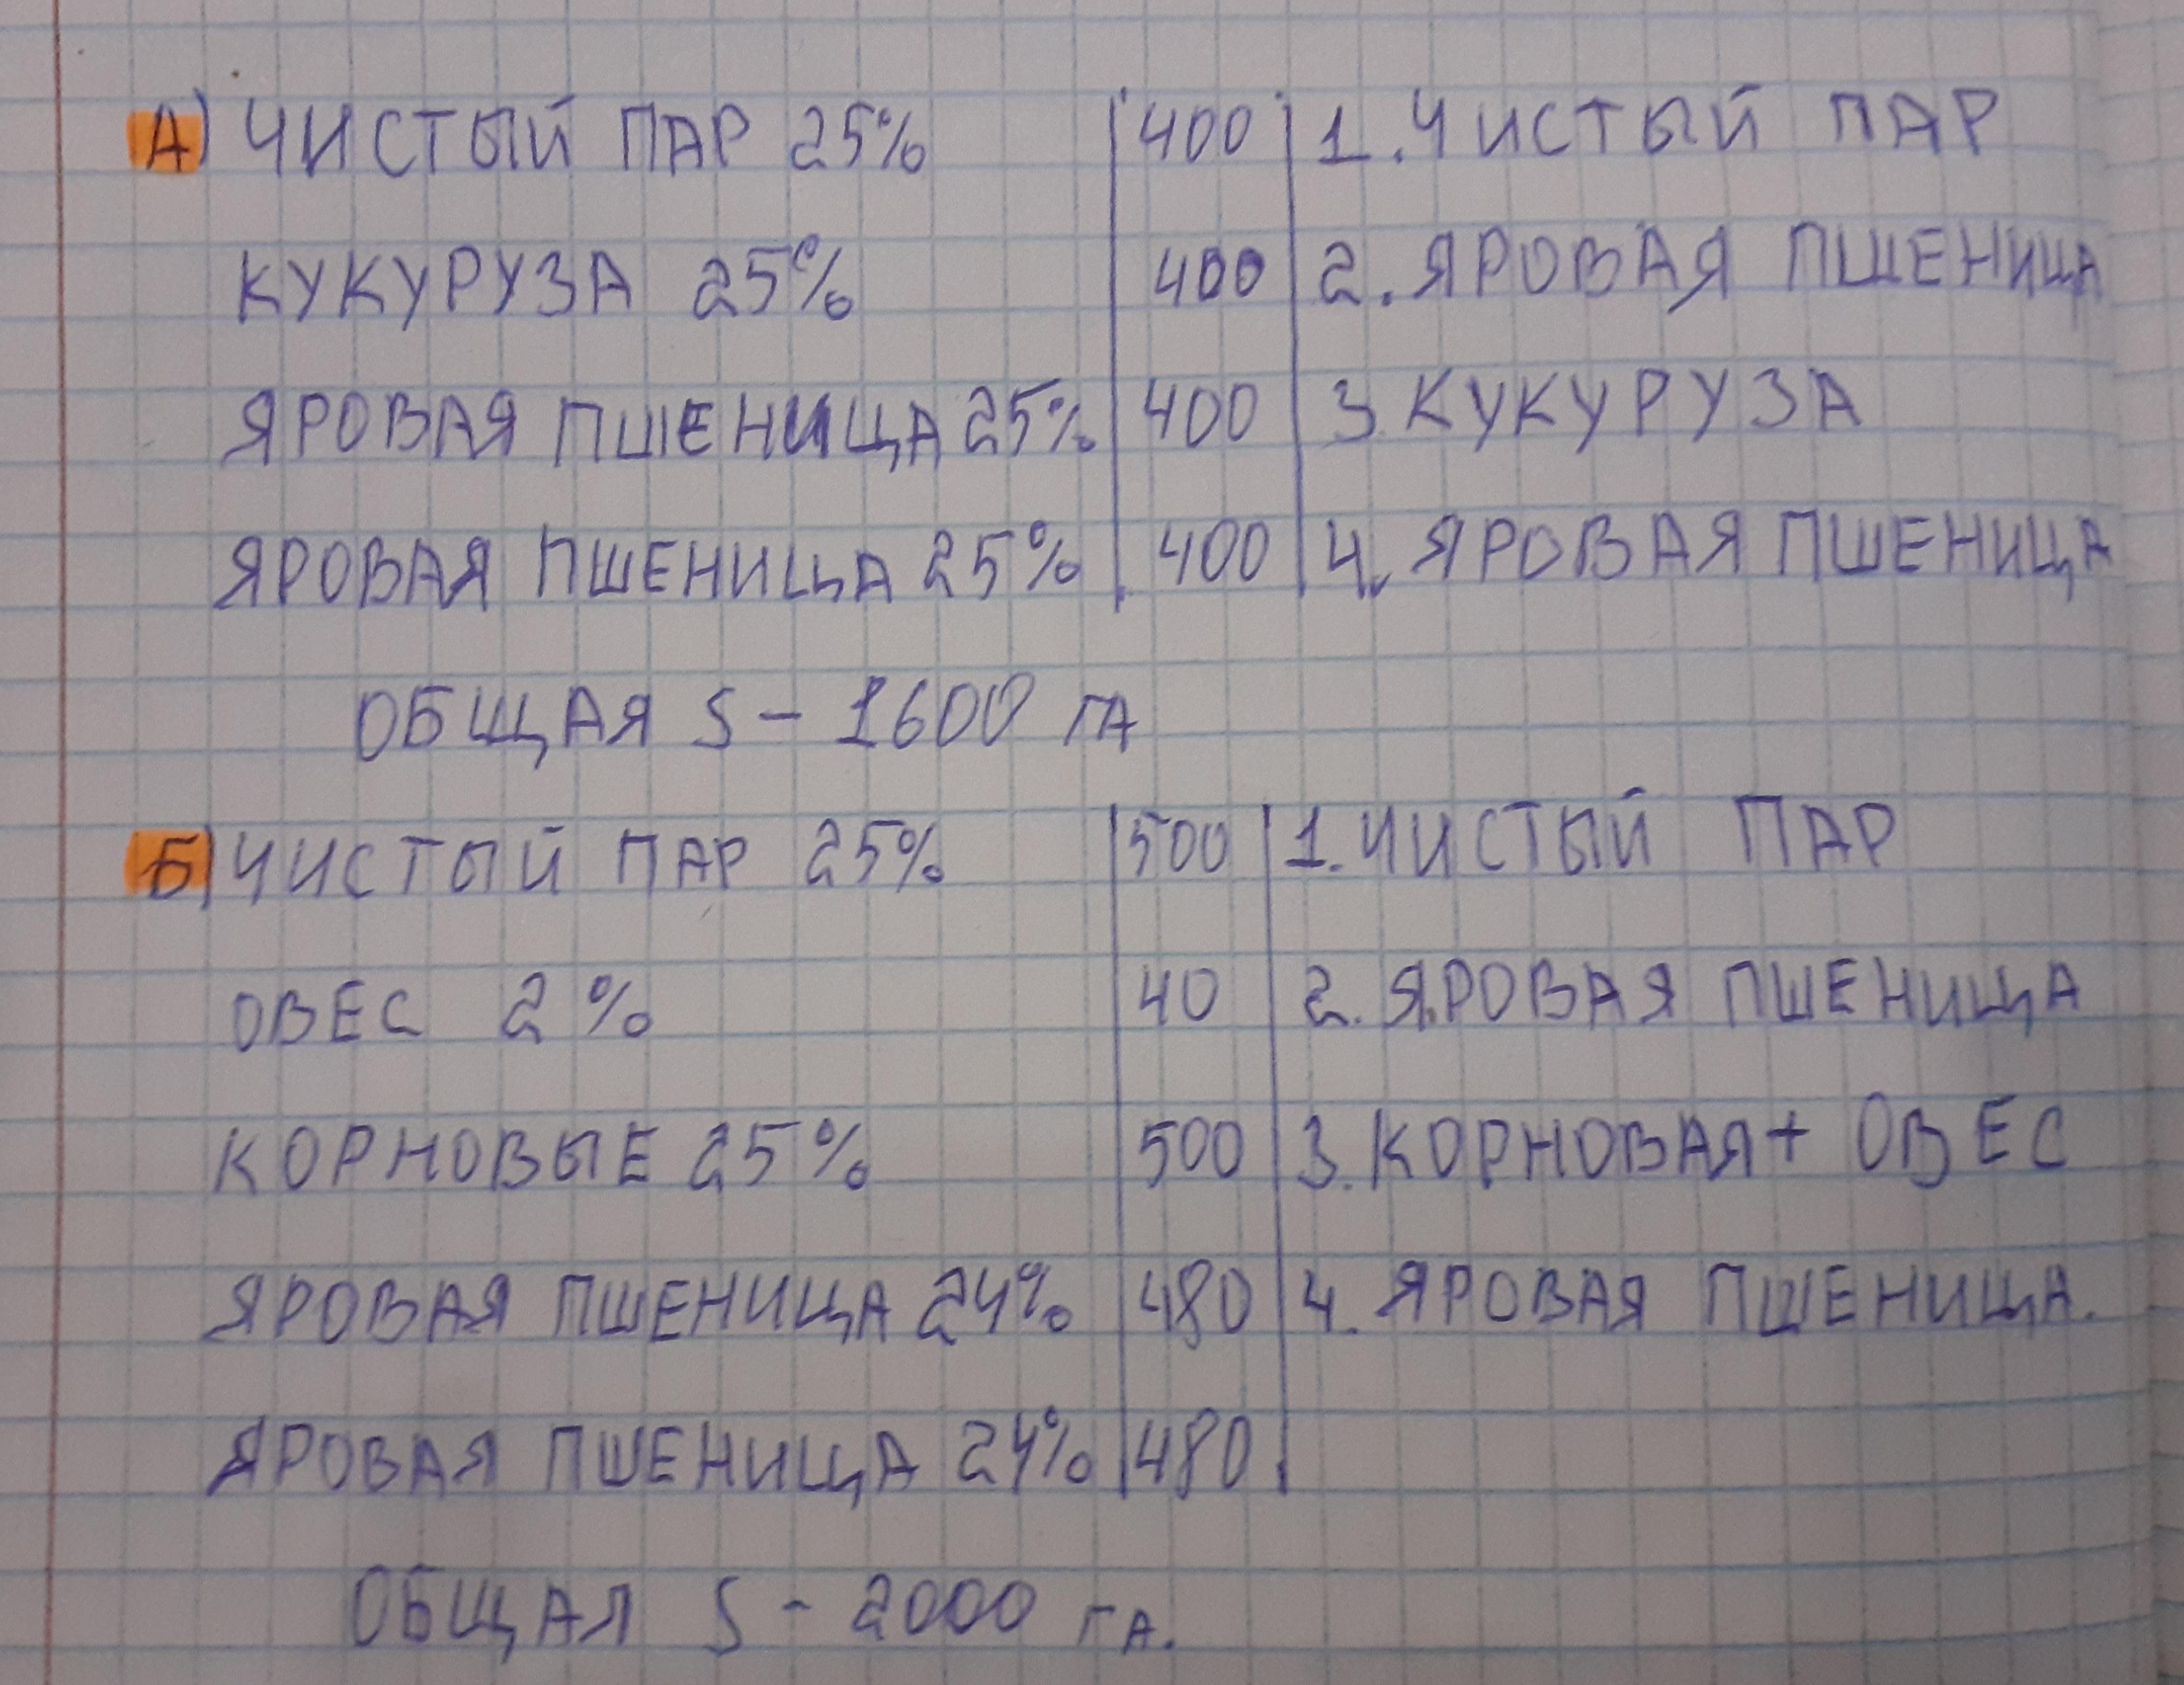 А) ЧИСТЫЙ ПАР 25% 400 1. ЧИСТЫЙ ПАР
КУКУРУЗА 25% 400 2. ЯРОВАЯ ПШЕНИЦА
ЯРОВАЯ ПШЕНИЦА 25% 400 3. КУКУРУЗА
ЯРОВАЯ ПШЕНИЦА 25% 400 4. ЯРОВАЯ ПШЕНИЦА
ОБЩАЯ S - 1600 ГА
Б) ЧИСТЫЙ ПАР 25% 500 1. ЧИСТЫЙ ПАР
ОВЕС 2% 40 2. ЯРОВАЯ ПШЕНИЦА
КОРНОВЫЕ 25% 500 3. КОРНОВАЯ + ОВЕС
ЯРОВАЯ ПШЕНИЦА 24% 480 4. ЯРОВАЯ ПШЕНИЦА.
ЯРОВАЯ ПШЕНИЦА 24% 480
ОБЩАЯ S - 2000 ГА.